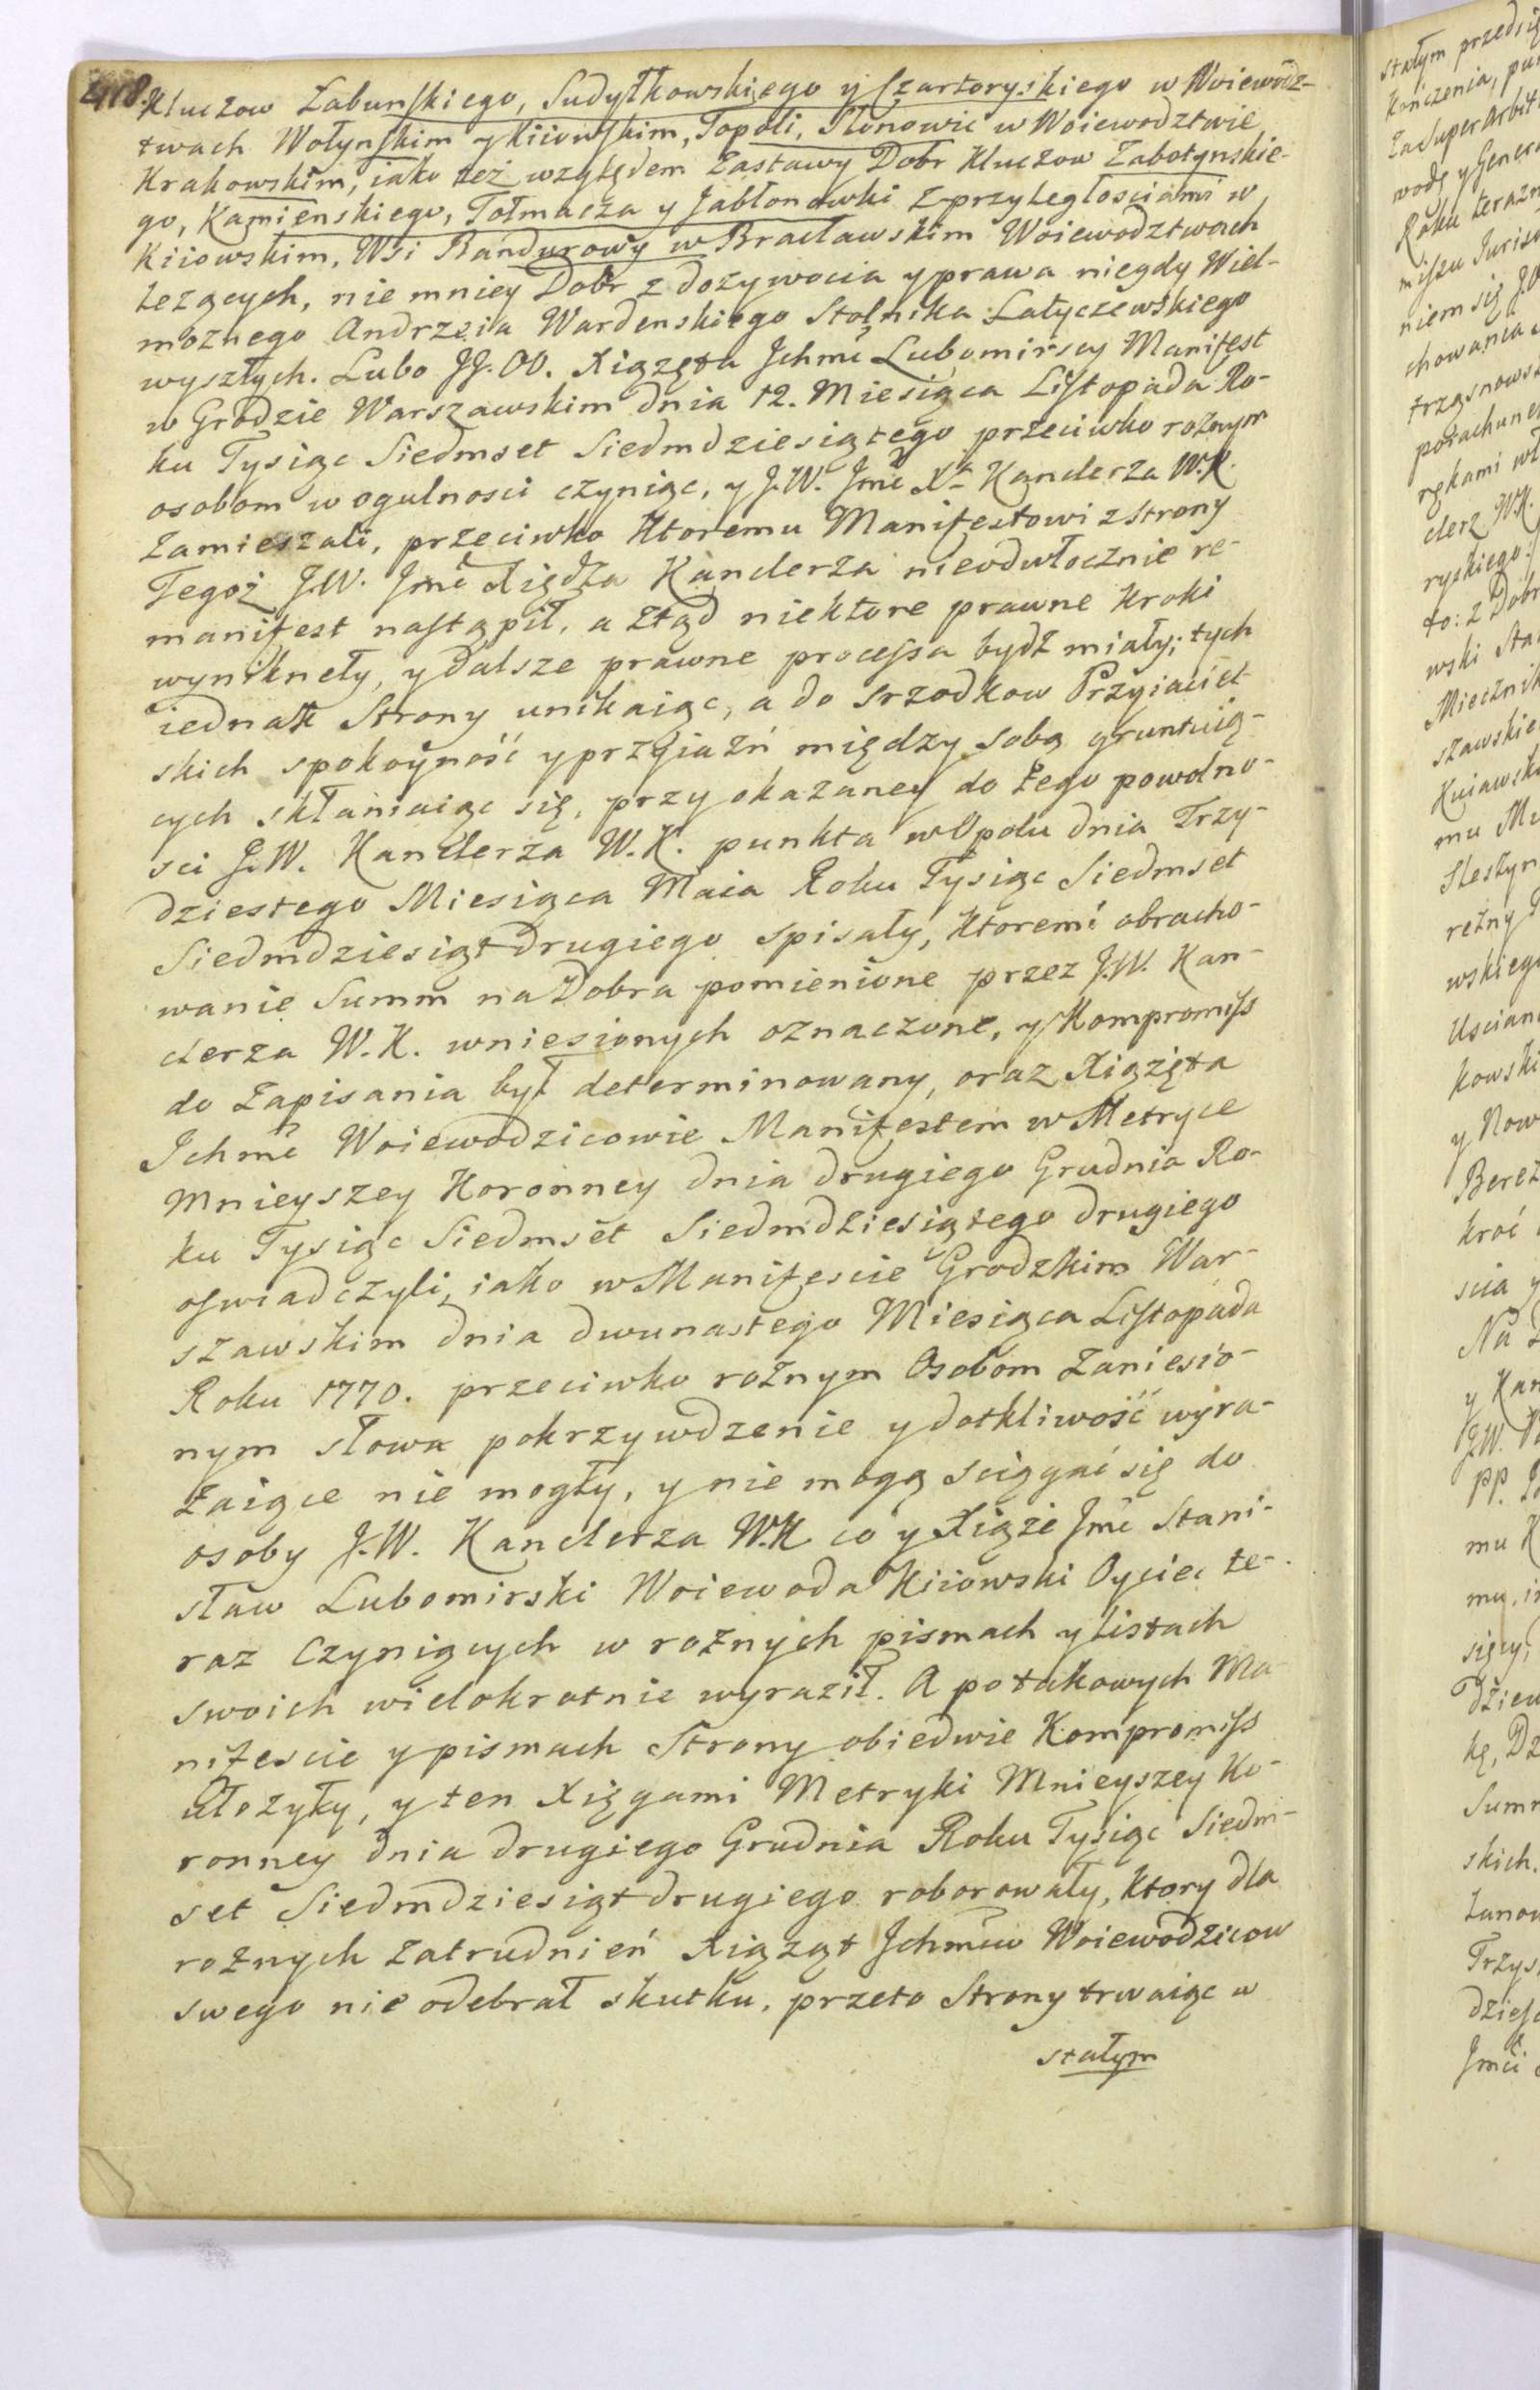 418.
Kluczow Łabunskiego, Sudyłkowskiego y Czartoryskiego w Woiewodz-
twach Wołynskim y Kiiowskim, Topoli, Słonowic w Woiewodztwie
Krakowskim, iako też względem Zastawy Dobr Kluczow Zabotynskie-
go, Kamienskiego, Tołmacza y Jabłonowki z przyległosciami w
Kiiowskim, Wsi Bandurowy w Bracławskim Woiewodztwach
leżących, nie mniey Dobr z dozywocia y prawa niegdy Wiel-
moznego Andrzeia Wardenskiego Stolnika Latyczewskiego
wyszłych. Lubo JJ. OO. Xiążęta Jchmć Lubomirscy Manifest
w Grodzie Warszawskim dnia 12. Miesiąca Listopada Ro-
ku Tysiąc Siedmset Siedmdziesiątego przeciwko roznym
osobom w ogulnosci czyniąc, y J.W. Jmć Xa Kanclerza W.K.
zamieszali, przeciwko Ktoremu Manifestowi z strony
Tegoż J.W. Jmć Xiędza Kanclerza nieodwłocznie re-
manifest nastąpił, a ztąd niektore prawne Kroki
wyniknęły, y dalsze prawne processa bydź miały; tych
iednak Strony unikaiąc, a do srzodkow Przyiaciel-
skich spokoyność y przyiaźń między sobą gruntuią-
cych skłaniaiąc się, przy okazaney do tego powolno-
sci J.W. Kanclerza W.K. punkta w Opolu dnia Trzy-
dziestego Miesiąca Maia Roku Tysiąc Siedmset
Siedmdziesiąt drugiego spisały, Ktoremi obracho-
wanie Summ na Dobra pomienione przez J.W. Kan-
clerza W.K. wniesionych oznaczone, y Kompromiss
do zapisania był determinowany, oraz Xiążęta
Jchmć Woiewodzicowie Manifestem w Metryce
Mnieyszey Koronney dnia drugiego Grudnia Ro-
ku Tysiąc Siedmset Siedmdziesiątego drugiego
oswiadczyli, iako w Manifescie Grodzkim War-
szawskim dnia dwunastego Miesiąca Listopada
Roku 1770. przeciwko rożnym Osobom zaniesio-
nym słowa pokrzywdzenie y dotkliwość wyra-
żaiące nie mogły, y nie mogą sciągać się do
osoby J.W. Kanclerza W.K. co y Xiąże Jmć Stani-
sław Lubomirski Woiewoda Kiiowski Oyciec te-
raz Czyniących w rożnych pismach y listach
swoich wielokrotnie wyraził. A po takowych Ma-
nifescie y pismach Strony obiedwie Kompromiss
ułożyły, y ten Xięgami Metryki Mnieyszey Ko-
ronney dnia drugiego Grudnia Roku Tysiąc Siedm-
set Siedmdziesiąt drugiego roborowały, Ktory dla
rożnych zatrudnień Xiążąt Jchmćw Woiewodzicow
swego nie odebrał skutku, przeto Strony trwaiąc w
stałym
stałym
kończenia,
Zasuper
wodę y
Roku
niem się
rękami
clerz W.K.
ryskiego
to: z Dobr
wski
szawskie
mu
wskieg
kowski
y Now
króć
scia y
Na
y Kan
J.W.
pp.
mu
mu,
Summ
skich.
Trzys
Jmći